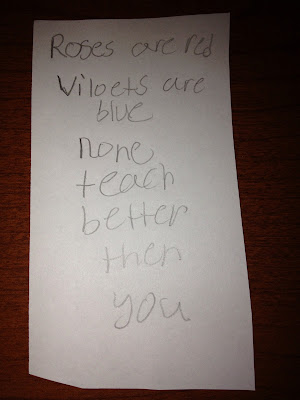 Roses are red
Viloets are
blue
none
teach
better
then
you